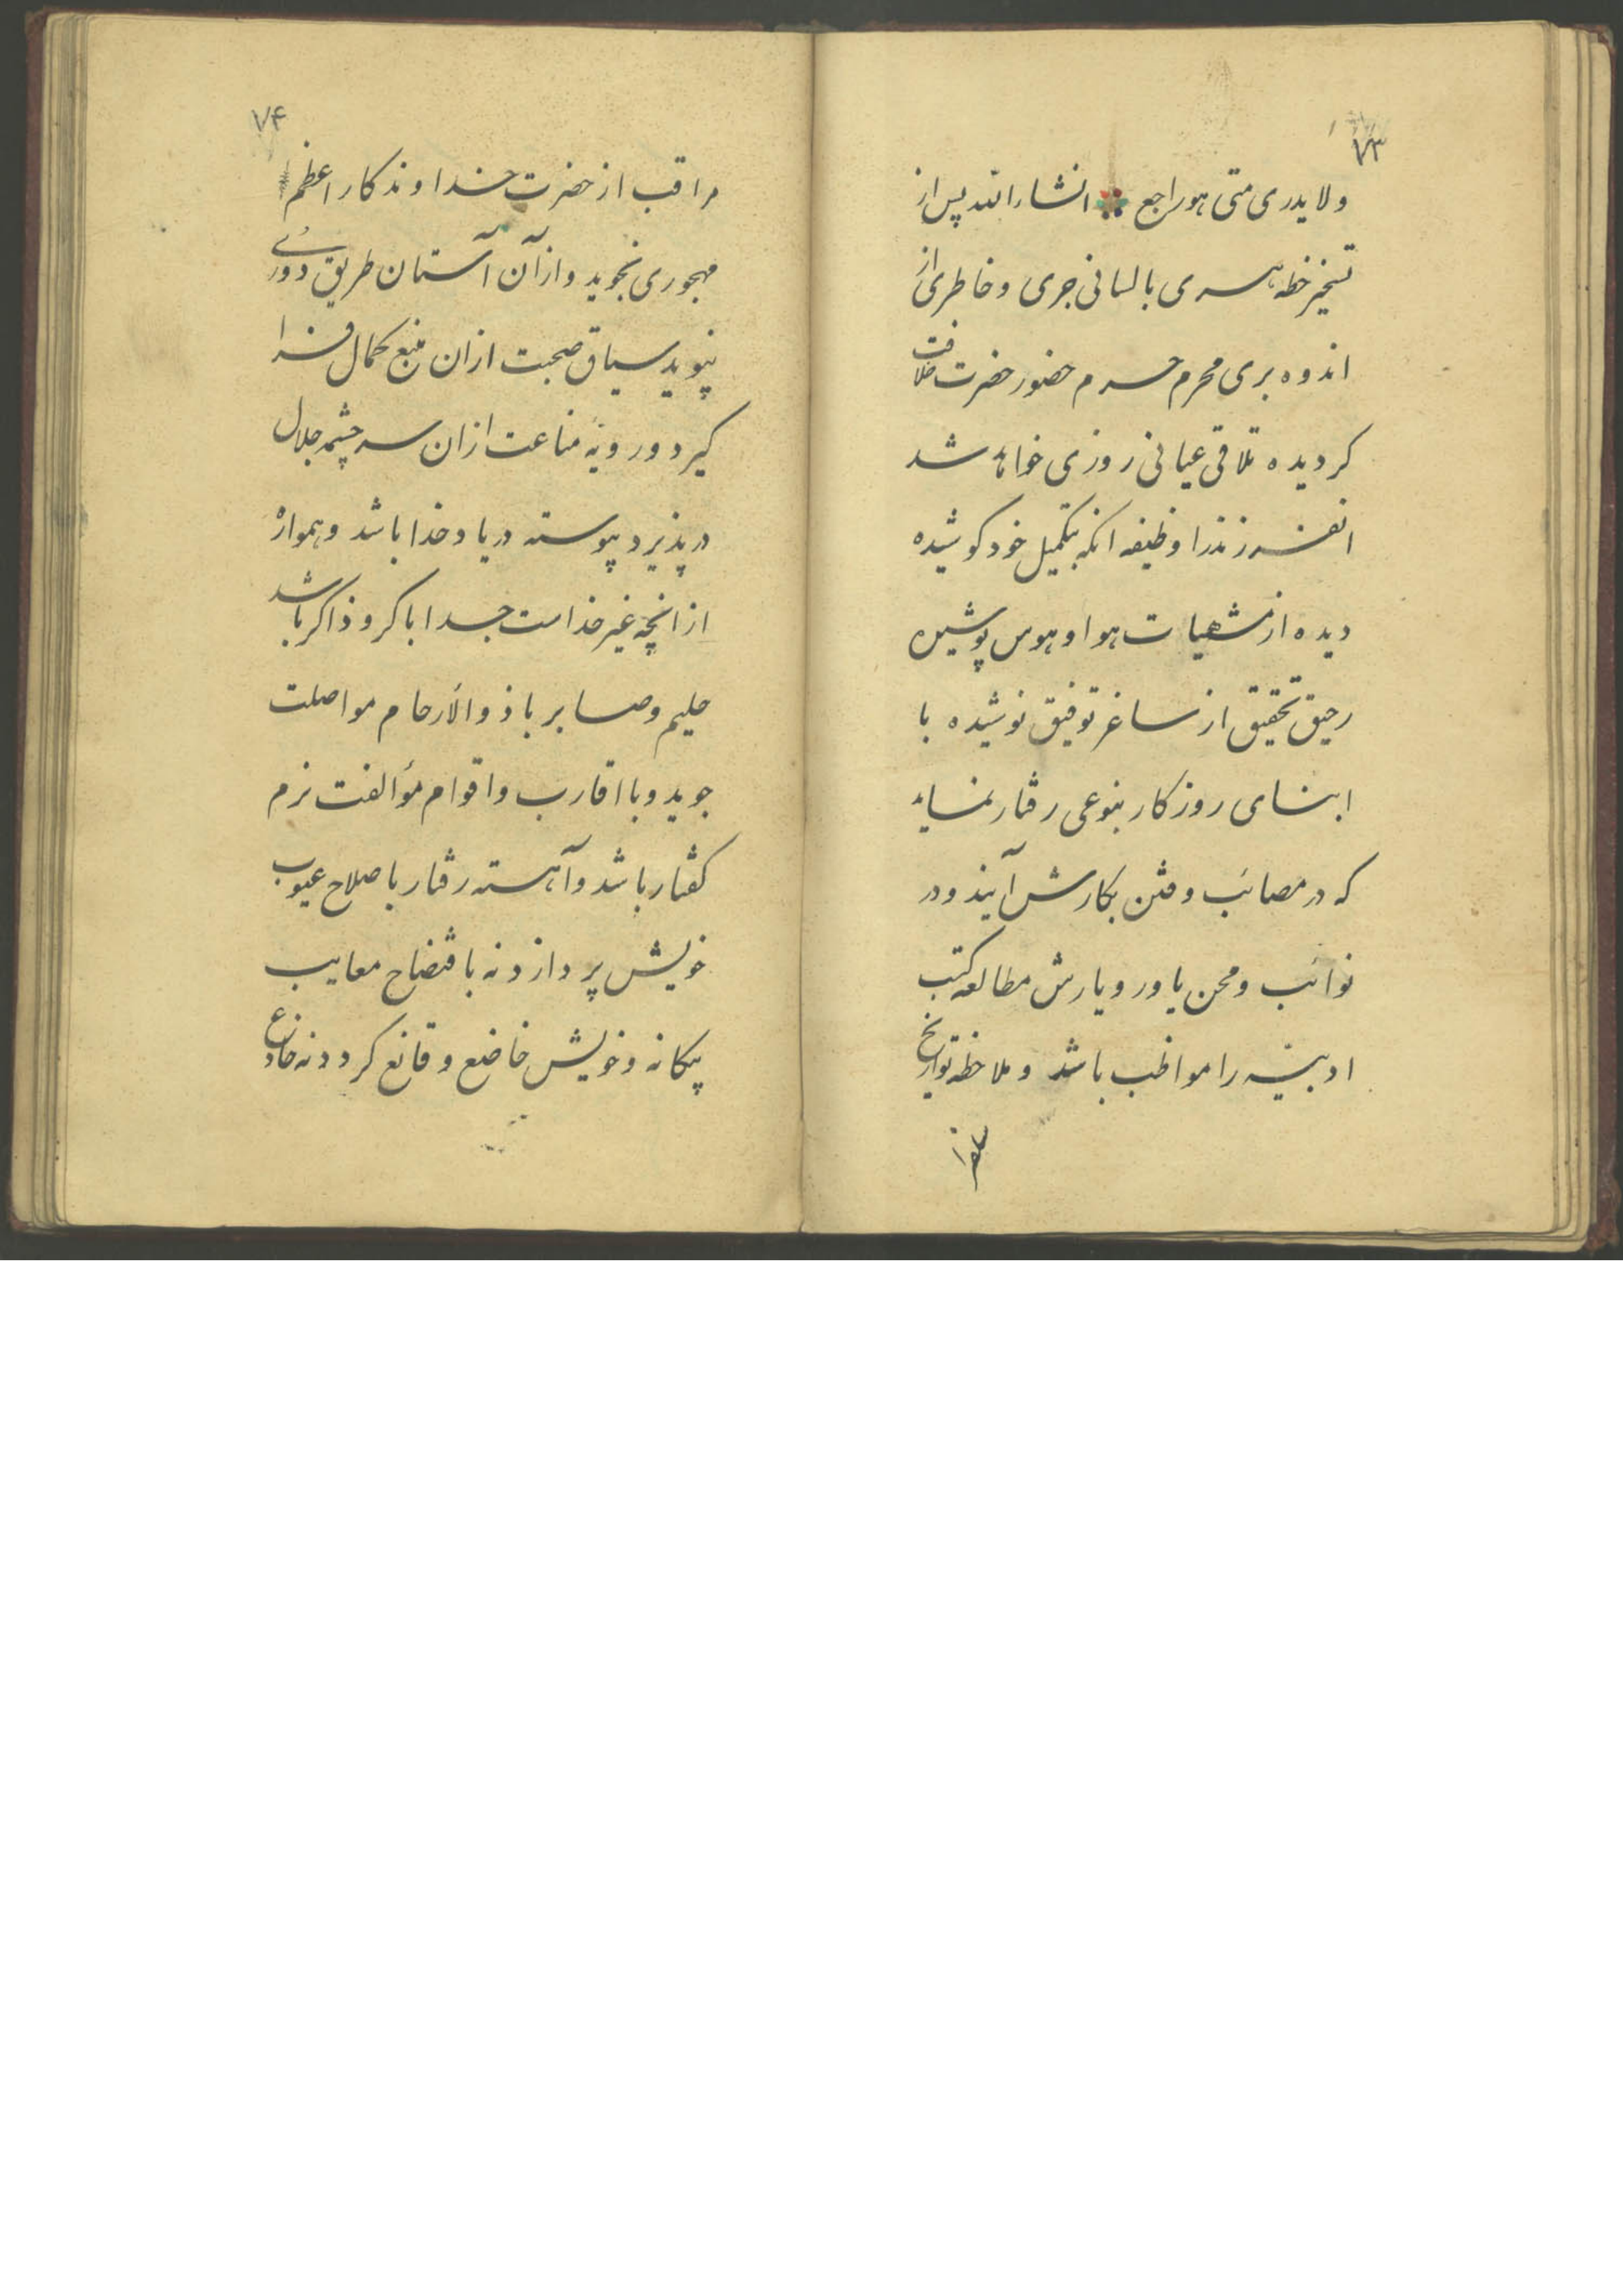 ۷۳
ولا یدری متی هو راجع انشاء الله پس از
تسخیر خطه هری با لسانی جری و خاطری از
اندوه بری محرم حرم حضور حضرت خلافت
کردیده تلاقی عیانی روزی خواهد شد
انفرزندرا وظیفه انکه بتکمیل خود کوشیده
دیده از مشهیات هوا و هوس پوشیده
رحیق تحقیق از ساغر توفیق نوشیده با
ابنای روزکار بنوعی رفتار نماید
که در مصائب و فتن بکارش آیند و در
نوائب و محن یاور و یارش مطالعه کتب
ادبیه را مواظب باشد و ملاحظه تواریخ
۷۴
مراقب از حضرت خداوندکار اعظم
مهجوری نجوید و از آن آستان طریق دوری
نپوید سیاق صحبت ازان منبع کمال فرا
کیرد و رویهٔ مناعت ازان سرچشمه جلال
در پذیرد پیوسته در یاد خدا باشد و همواره
از انچه غیر خداست جدا باکر و ذاکر باشد
حلیم و صابر با ذو الأرحام مواصلت
جوید و با اقارب و اقوام مؤالفت نرم
کفتار باشد و آهسته رفتار باصلاح عیوب
خویش پردازد نه بافتضاح معایب
بیکانه و خویش خاضع و قانع کردد نه خادع